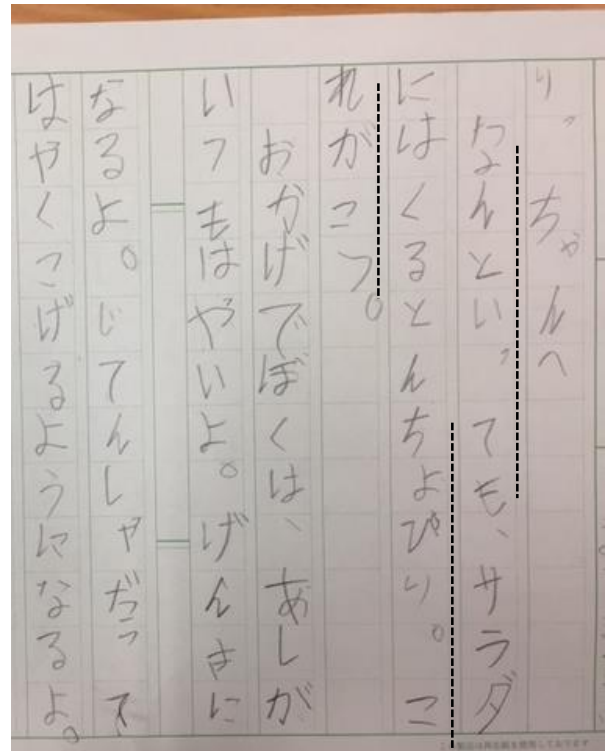 りっちゃんへ
なんといっても、サラダ
にはくるとんちょぴり。こ
れがこつ。
おかげでぼくは、あしが
いつもはやいよ。げんきに
なるよ。じてんしゃだって
はやくこげるようになるよ。